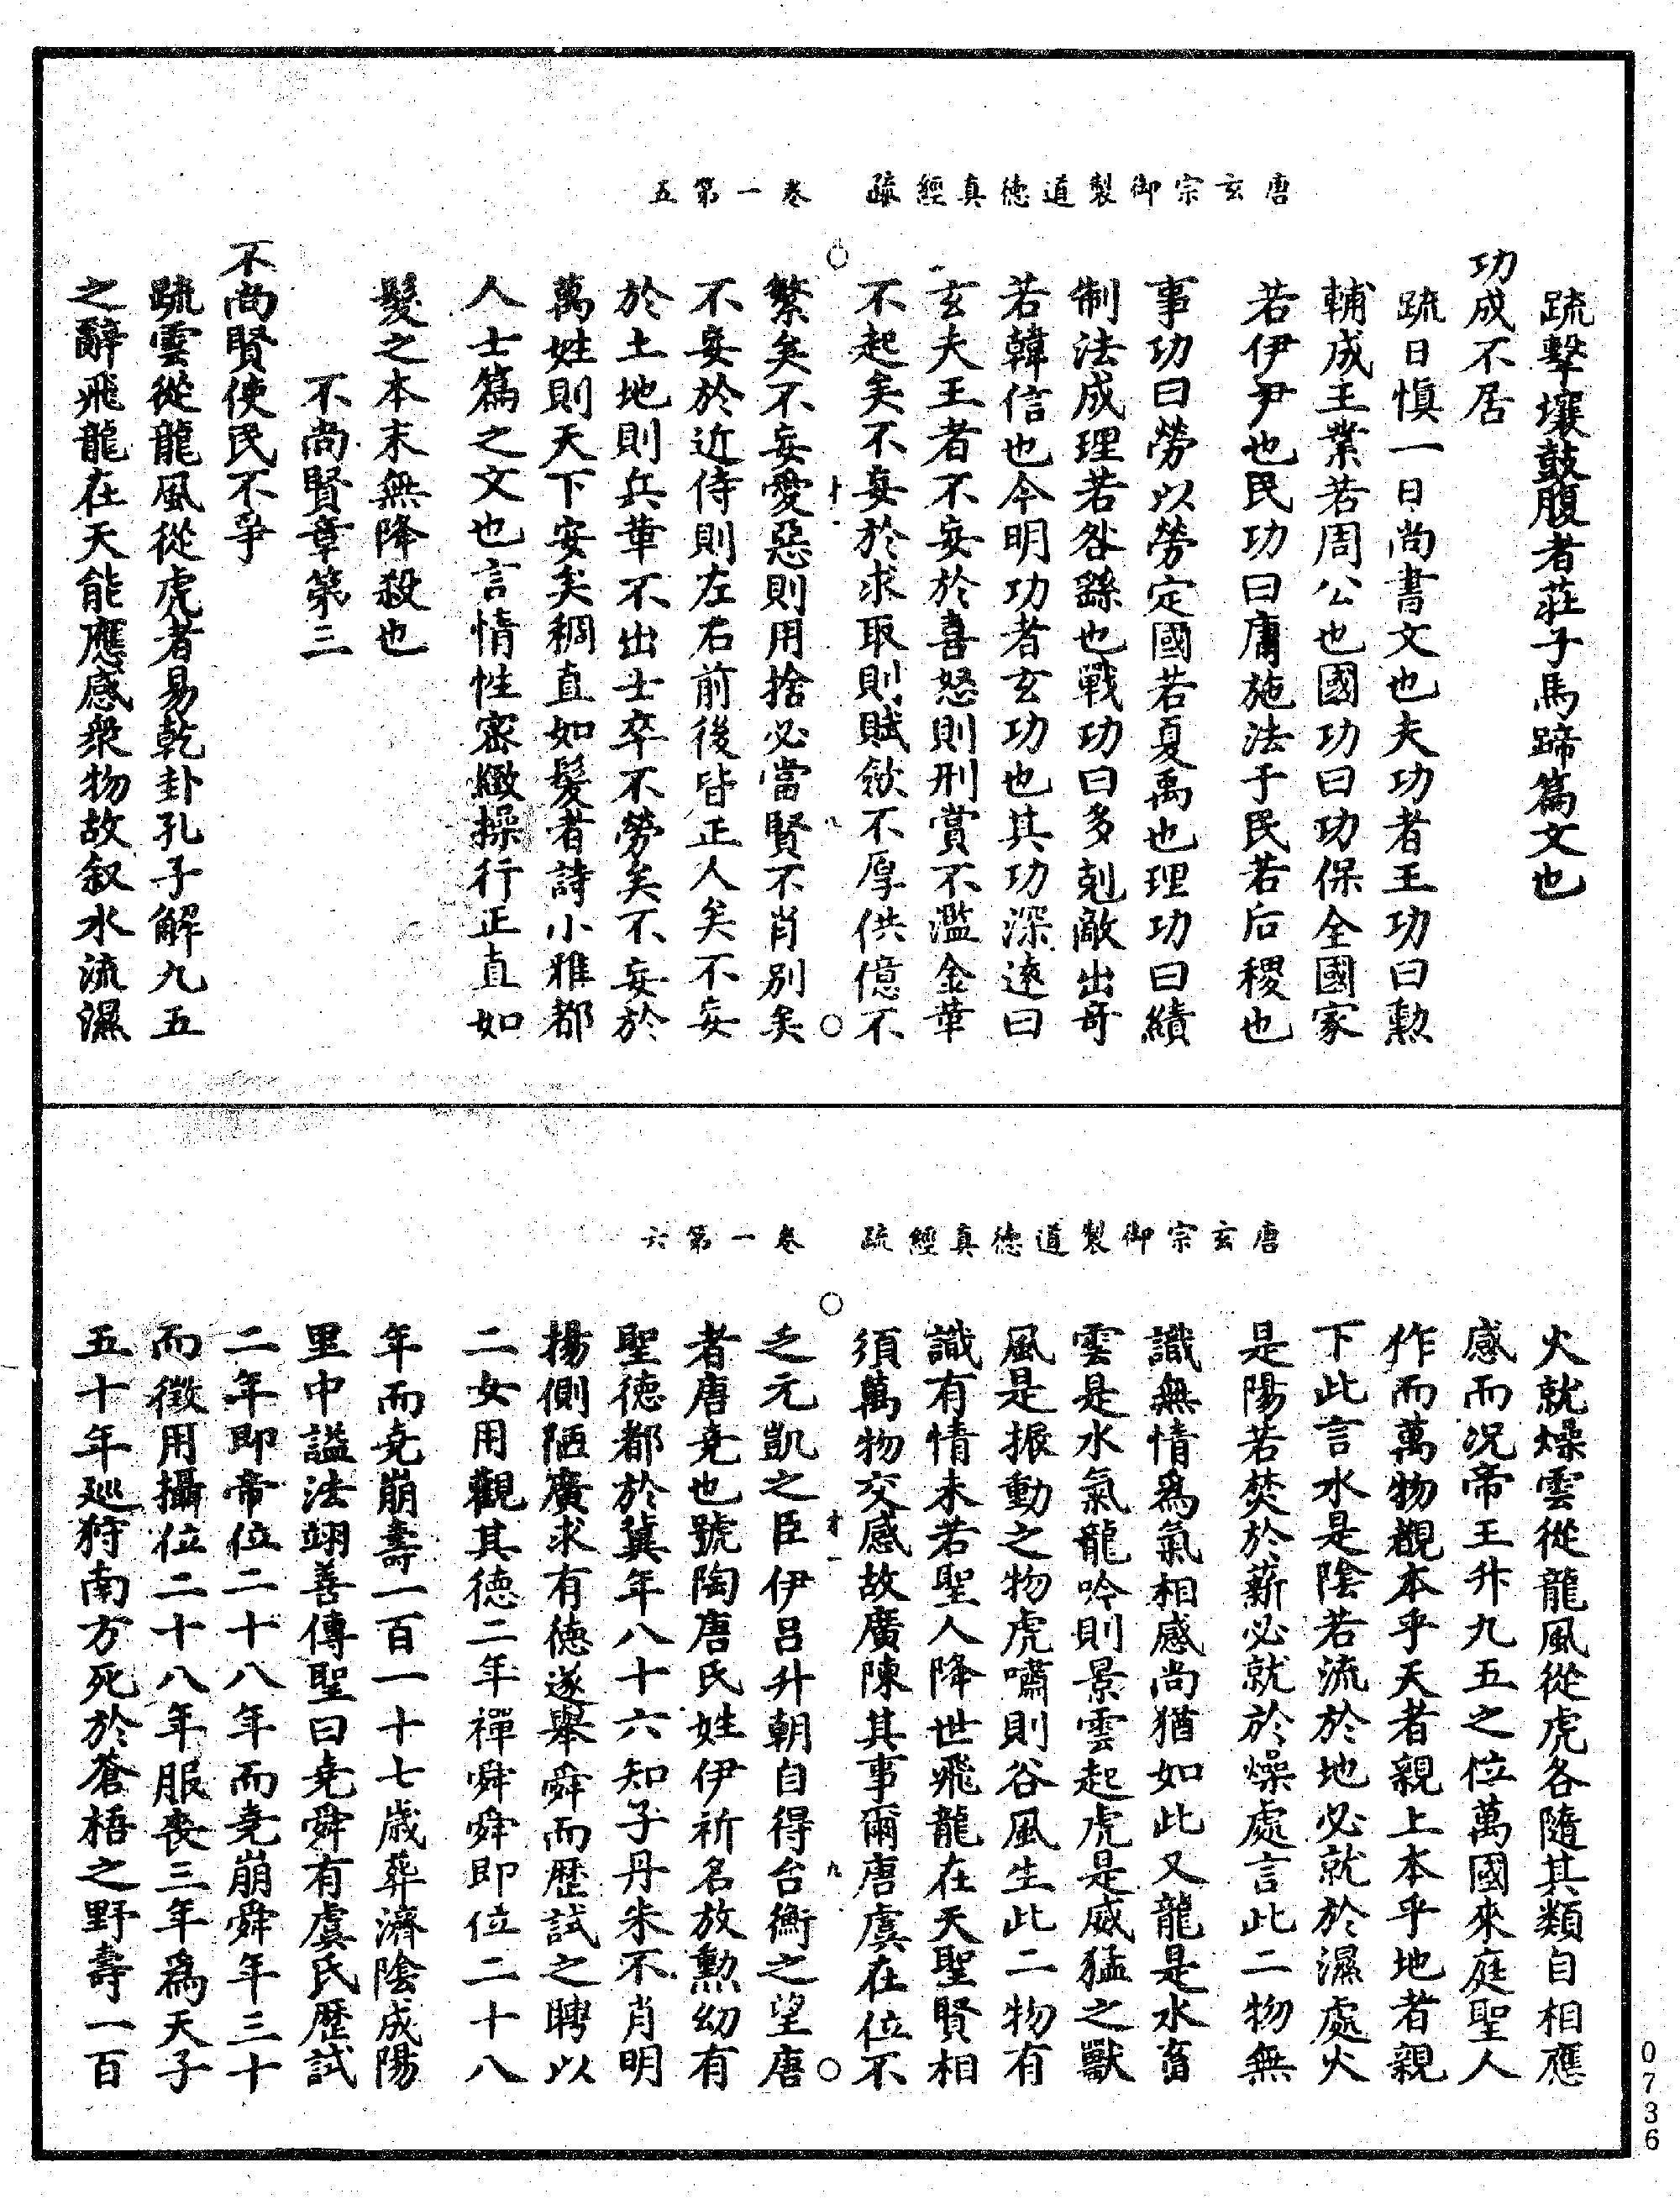 唐玄宗御製道德真經疏　卷一第五
疏擊壤鼓腹者莊子馬蹄篇文也
功成不居
疏日慎一日尚書文也夫功者王功曰勲
輔成王業若周公也國功曰功保全國家
若伊尹也民功曰庸施法于民若后稷也
事功曰勞以勞定國若夏禹也理功曰績
制法成理若咎繇也戰功曰多剋敵出奇
若韓信也今明功者玄功也其功深遠曰
玄夫王者不妄於喜怒則刑賞不濫金革
不起矣不妄於求取則賦斂不厚供億不
繁矣不妄愛惡則用捨必當賢不肖別矣
不妄於近侍則左右前後皆正人矣不妄
於土地則兵革不出士卒不勞矣不妄於
萬姓則天下安矣稠直如髮者詩小雅都
人士篇之文也言情性密緻操行正直如
髮之本末無降殺也
不尚賢章第三
不尚賢使民不爭
疏雲從龍風從虎者易乾卦孔子解九五
之辭飛龍在天能應感衆物故叙水流濕
唐玄宗御製道德真經疏　卷一第六
火就燥雲從龍風從虎各隨其類自相應
感而況帝王升九五之位萬國來庭聖人
作而萬物覩本乎天者親上本乎地者親
下此言水是陰若流於地必就於濕處火
是陽若焚於薪必就於燥處言此二物無
識無情爲氣相感尚猶如此又龍是水畜
雲是水氣龍吟則景雲起虎是威猛之獸
風是振動之物虎嘯則谷風生此二物有
識有情未若聖人降世飛龍在天聖賢相
須萬物交感故廣陳其事爾唐虞在位不
乏元凱之臣伊呂升朝自得台衡之望唐
者唐堯也號陶唐氏姓伊祈名放勲幼有
聖德都於冀年八十六知子丹朱不肖明
揚側陋廣求有德遂舉舜而歷試之聘以
二女用觀其德二年禪舜舜即位二十八
年而堯崩壽一百一十七歲葬濟陰成陽
里中謚法翊善傳聖曰堯舜有虞氏歷試
二年即帝位二十八年而堯崩舜年三十
而徵用攝位二十八年服喪三年爲天子
五十年巡狩南方死於蒼梧之野壽一百
0736